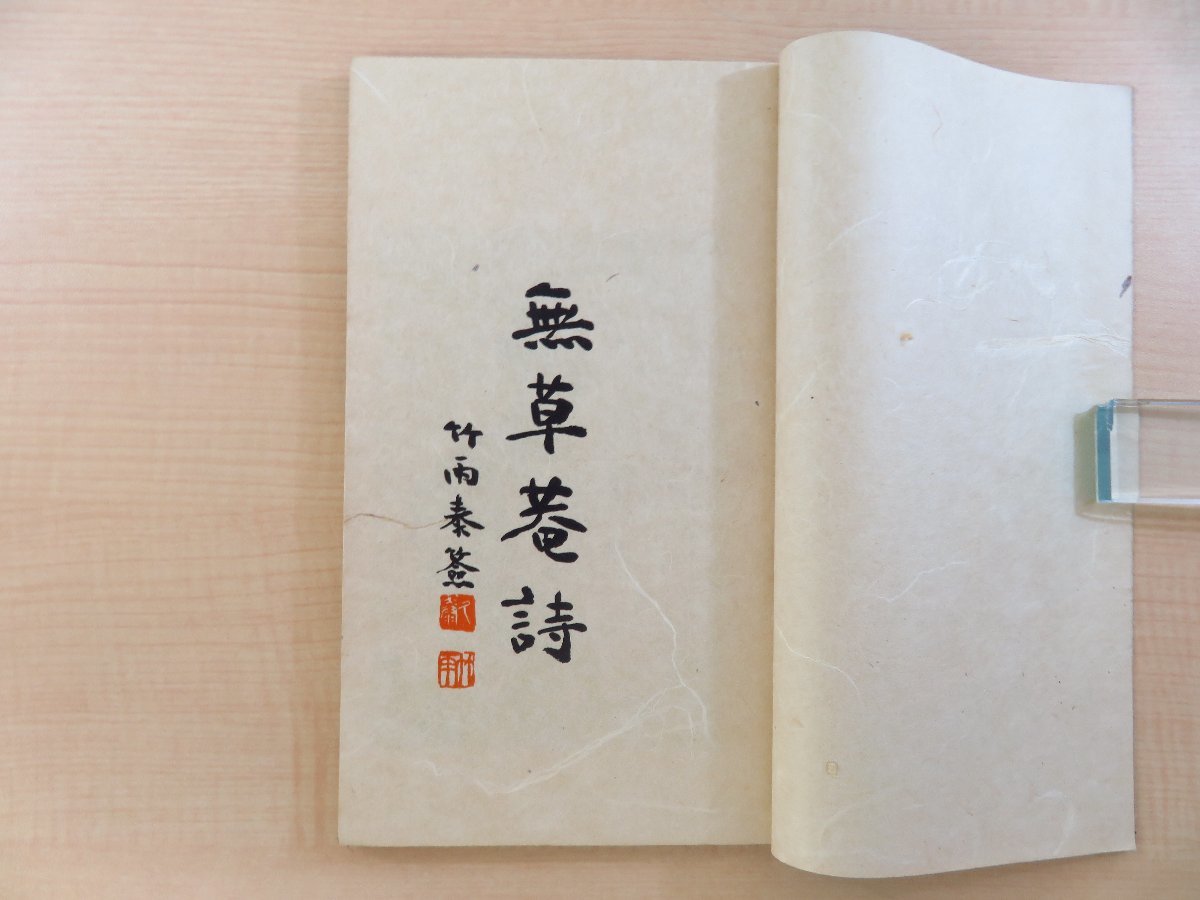 無草菴詩
竹雨泰簽